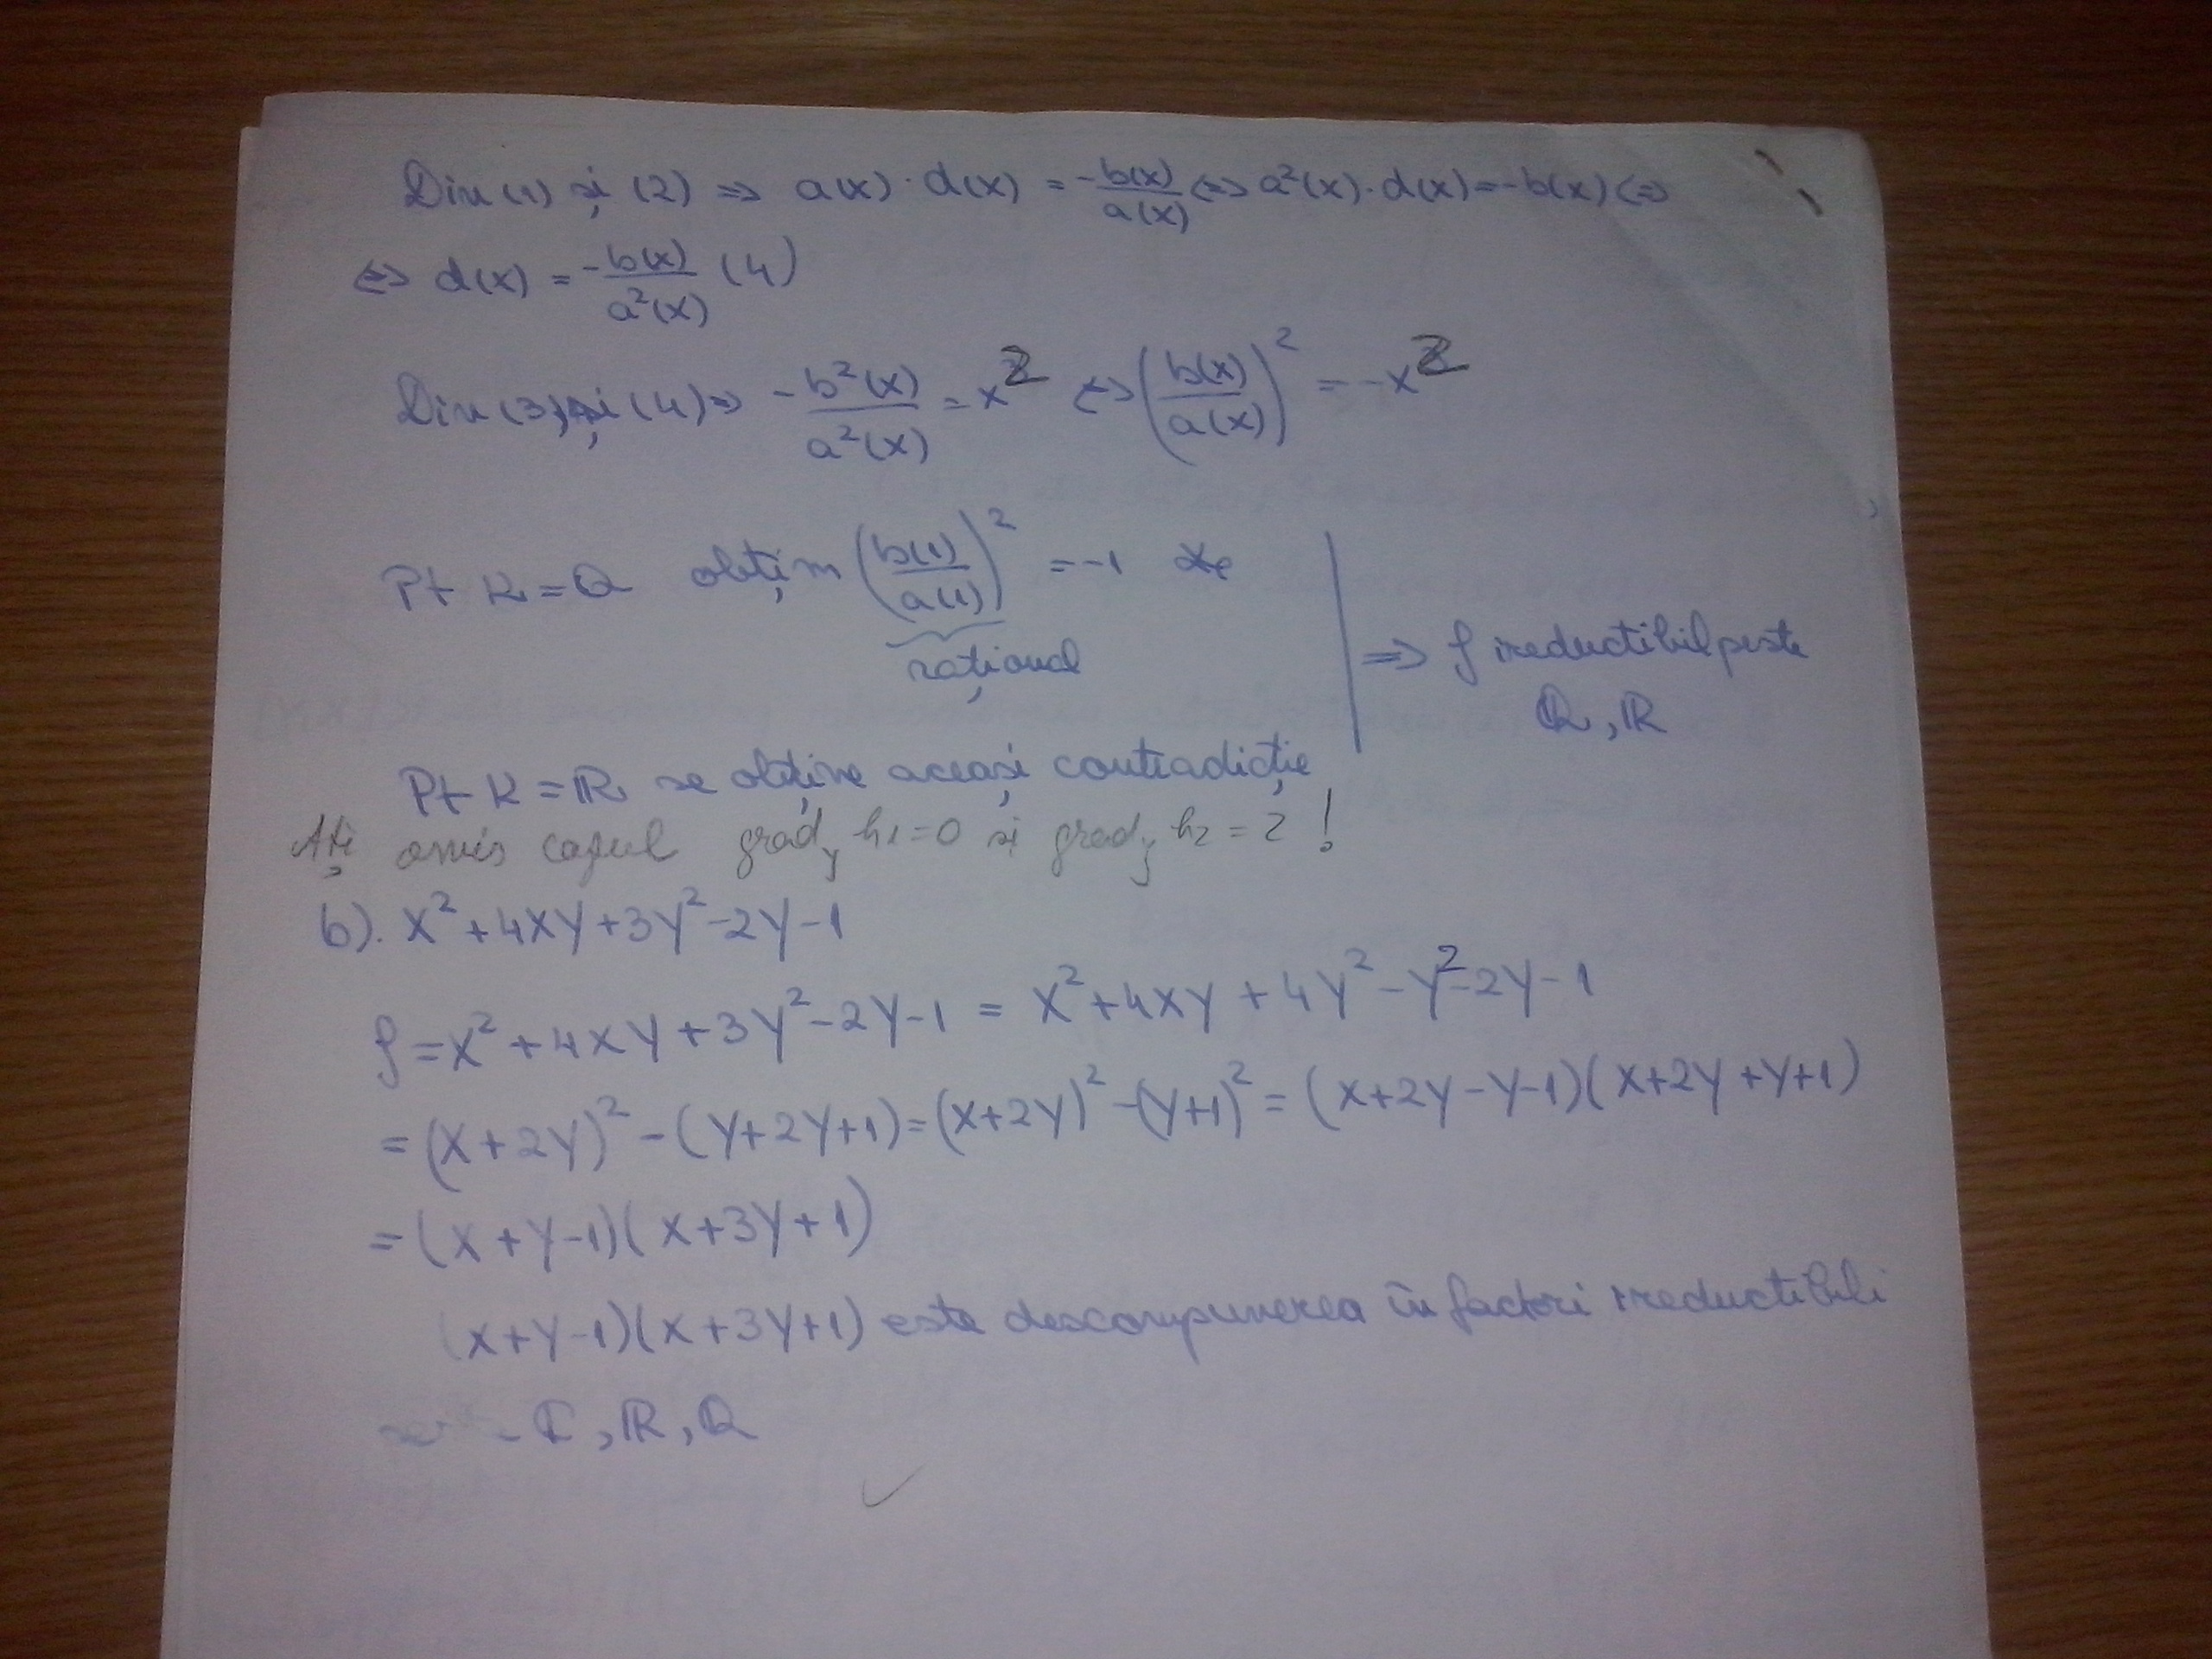 Din (1) și (2) => a(x) · d(x) = -b(x)/a(x) <=> a²(x) · d(x) = -b(x) <=>
<=> d(x) = -b(x)/a²(x) (4)
Din (3) și (4) => -b²(x)/a²(x) = x² <=> (b(x)/a(x))² = -x²
Pt K = Q obțim (b(1)/a(1))² = -1
rațional
=> f ireductibil peste
Q, R
Pt K = R se obține aceași contradicție
Ați omis cazul grad_y h₁ = 0 și grad_y h₂ = 2 !
b). X² + 4XY + 3Y² - 2Y - 1
f = X² + 4XY + 3Y² - 2Y - 1 = X² + 4XY + 4Y² - Y² - 2Y - 1
= (X + 2Y)² - (Y + 2Y + 1) = (X + 2Y)² - (Y + 1)² = (X + 2Y - Y - 1)(X + 2Y + Y + 1)
= (X + Y - 1)(X + 3Y + 1)
(X + Y - 1)(X + 3Y + 1) este descompunerea în factori ireductibili
C, R, Q